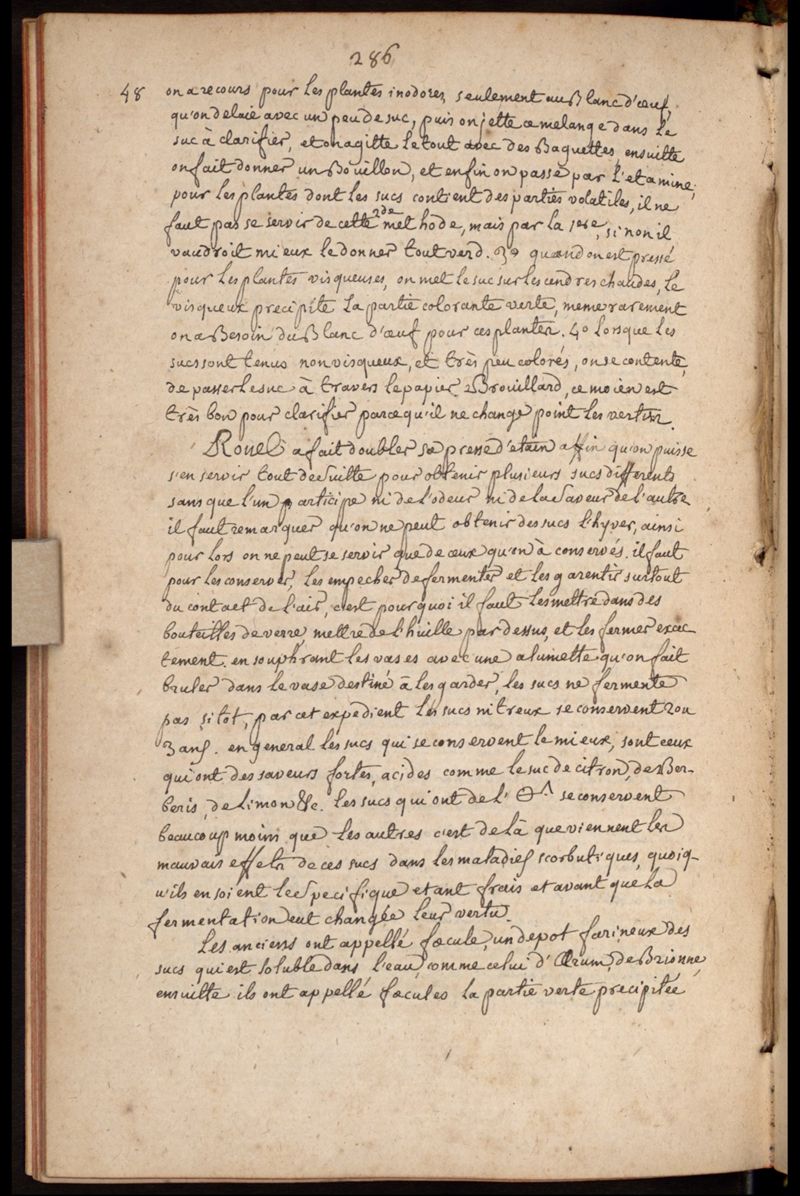 286
48 on a recours pour les plantes inodores, seulement au Blanc d'œuf
qu'on delaie avec un peu de suc, puis on jette ce melange dans le
suc à clarifier, et on agitte le tout avec des Baguettes, ensuitte
on fait donner un Bouillon, et enfin on passe par l'etamine;
pour les plantes dont les sucs contient des parties volatiles, il ne
faut pas se servir de cette 2de methode, mais par la 1ere, si non il
vaudroit mieux le donner tout verd. 3o quand on est pressé
pour les plantes visqueuses, on met le suc sur les cendres chaudes, le
visqueux precipite la partie colorante verte, meme rarement
on a Besoin du Blanc d'œuf pour ces plantes. 4o lorsque les
sucs sont tenus non visqueux, et très peu colorés, on se contente
de passer le suc à travers le papier Brouillard, ce moien est
très bon pour clarifier parcequ'il ne change point les vertus.
Rouel a fait doubler sa presse d'etain affin qu'on puisse
s'en servir tout de suitte pour obtenir plusieurs sucs differents
sans que l'un participe ni de l'odeur ni de la saveur de l'autre
il faut remarquer qu'on ne peut obtenir des sucs l'hyver, ainsi
pour lors on ne peut se servir que de ceux qu'on à conservés. il faut
pour les conserver, les empecher de fermenter et les garentir surtout
du contact de l'air, c'est pourquoi il faut les mettre dans des
bouteilles de verre, mettre de l'huille par dessus, et les fermer exac-
tement. en souphrant les vases avec une alumette qu'on fait
bruler dans le vase destiné à les garder, les sucs ne fermente
pas sitot, par cet expedient les sucs nitreux se conservent 2 ou
3 ans. en general les sucs qui se conservent le mieux, sont ceux
qui ont des saveurs fortes, acides comme le suc de citron, de Ber-
beris, de limon &c. les sucs qui ont de l' se conservent
beaucoup moins que les autres c'est de là que viennent les
mauvais effets de ces sucs dans les maladies scorbutiques, quoiq-
u'ils en soient le specifique etant frais et avant que la
fermentation eut changée leur vertu.
Les anciens ont appellé fœcule, un depot farineux des
sucs qui est soluble dans l'eau, comme celui d'Arum, de Brionne
ensuitte ils ont appellé fœcules la partie verte precipitée